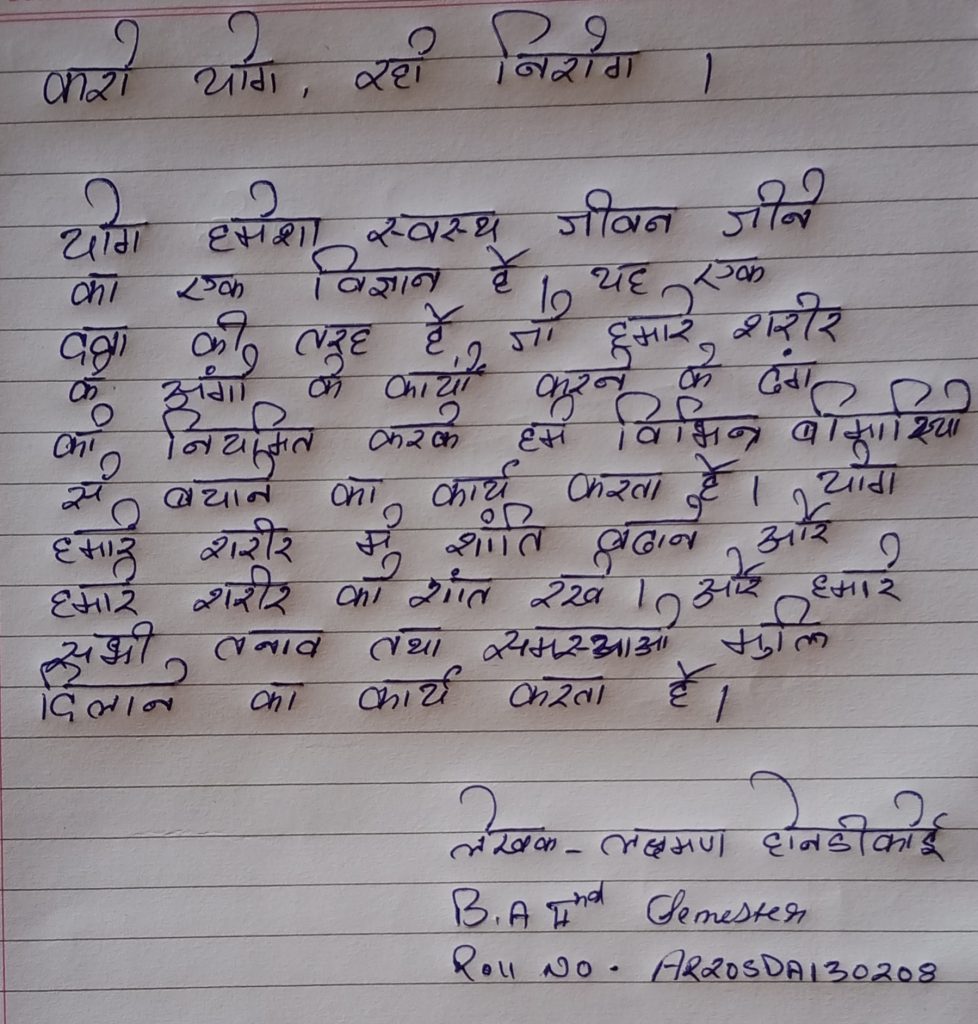 करो योग, रहो निरोग ।
योग हमेशा स्वस्थ जीवन जीने
का एक विज्ञान है । यह एक
दवा की तरह है, जो हमारे शरीर
के अंगों के कार्यों करने के ढंग
को नियमित करके हमें विभिन्न बीमारियों
से बचाने का कार्य करता है । योग
हमारे शरीर में शांति बढाने और
हमारे शरीर को शांत रखे । और हमारे
सभी तनाव तथा समस्याओं मुक्ति
दिलाने का कार्य करता है ।
लेखक - लक्ष्मण होनडीकोई
B.A IInd Semester
Roll No. AR20SDA130208